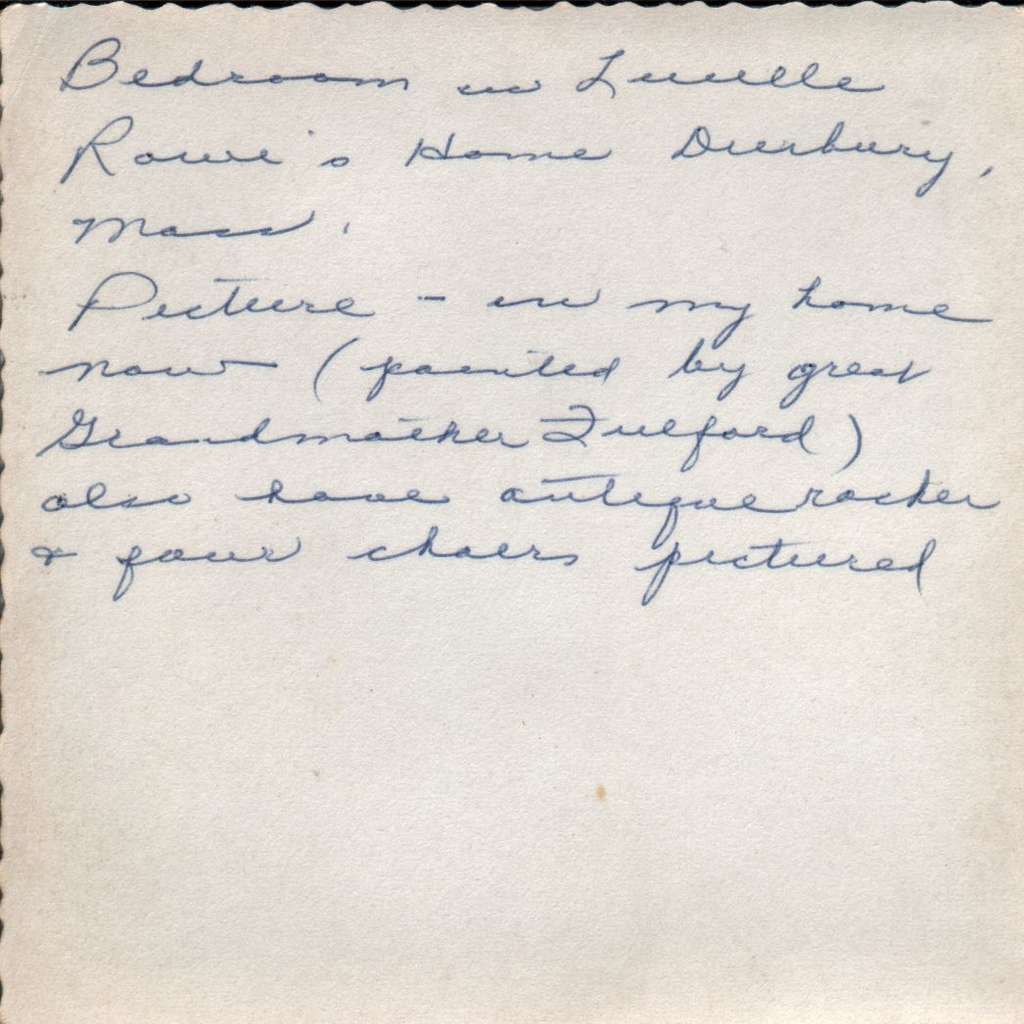 Bedroom in Lucille
Rowe's Home Duxbury,
Mass.
Picture - in my home
now (painted by great
Grandmother Fulford)
also have antique rocker
& four chairs pictured